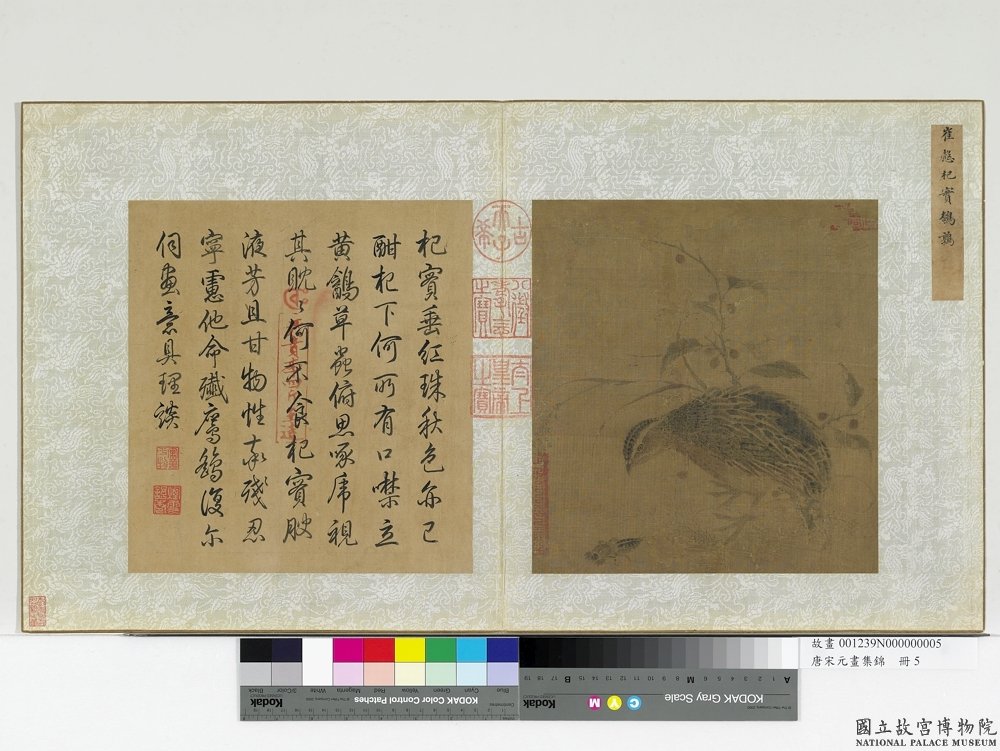 崔慤杞實鵪鶉
杞實垂紅珠秋色亦已
酣杞下何所有口噤立
黃鵪草蟲俯思啄虎視
其眈〻何不食杞實腴
液芳且甘物性本殘忍
寧慮他命殲鷹鷂復尔
伺畫意具理談
古希天子
八徵耄念之寶
太上皇帝之寶
KODAK Color Control Patches
Blue Cyan Green Yellow Red Magenta White 3/Color Black
Kodak
KODAK Gray Scale
A 1 2 3 4 5 6 M 8 9 10 11 12 13 14 15 B 17 18 19
C Y M
Kodak
故畫 001239N000000005
唐宋元畫集錦 冊 5
國立故宮博物院
NATIONAL PALACE MUSEUM